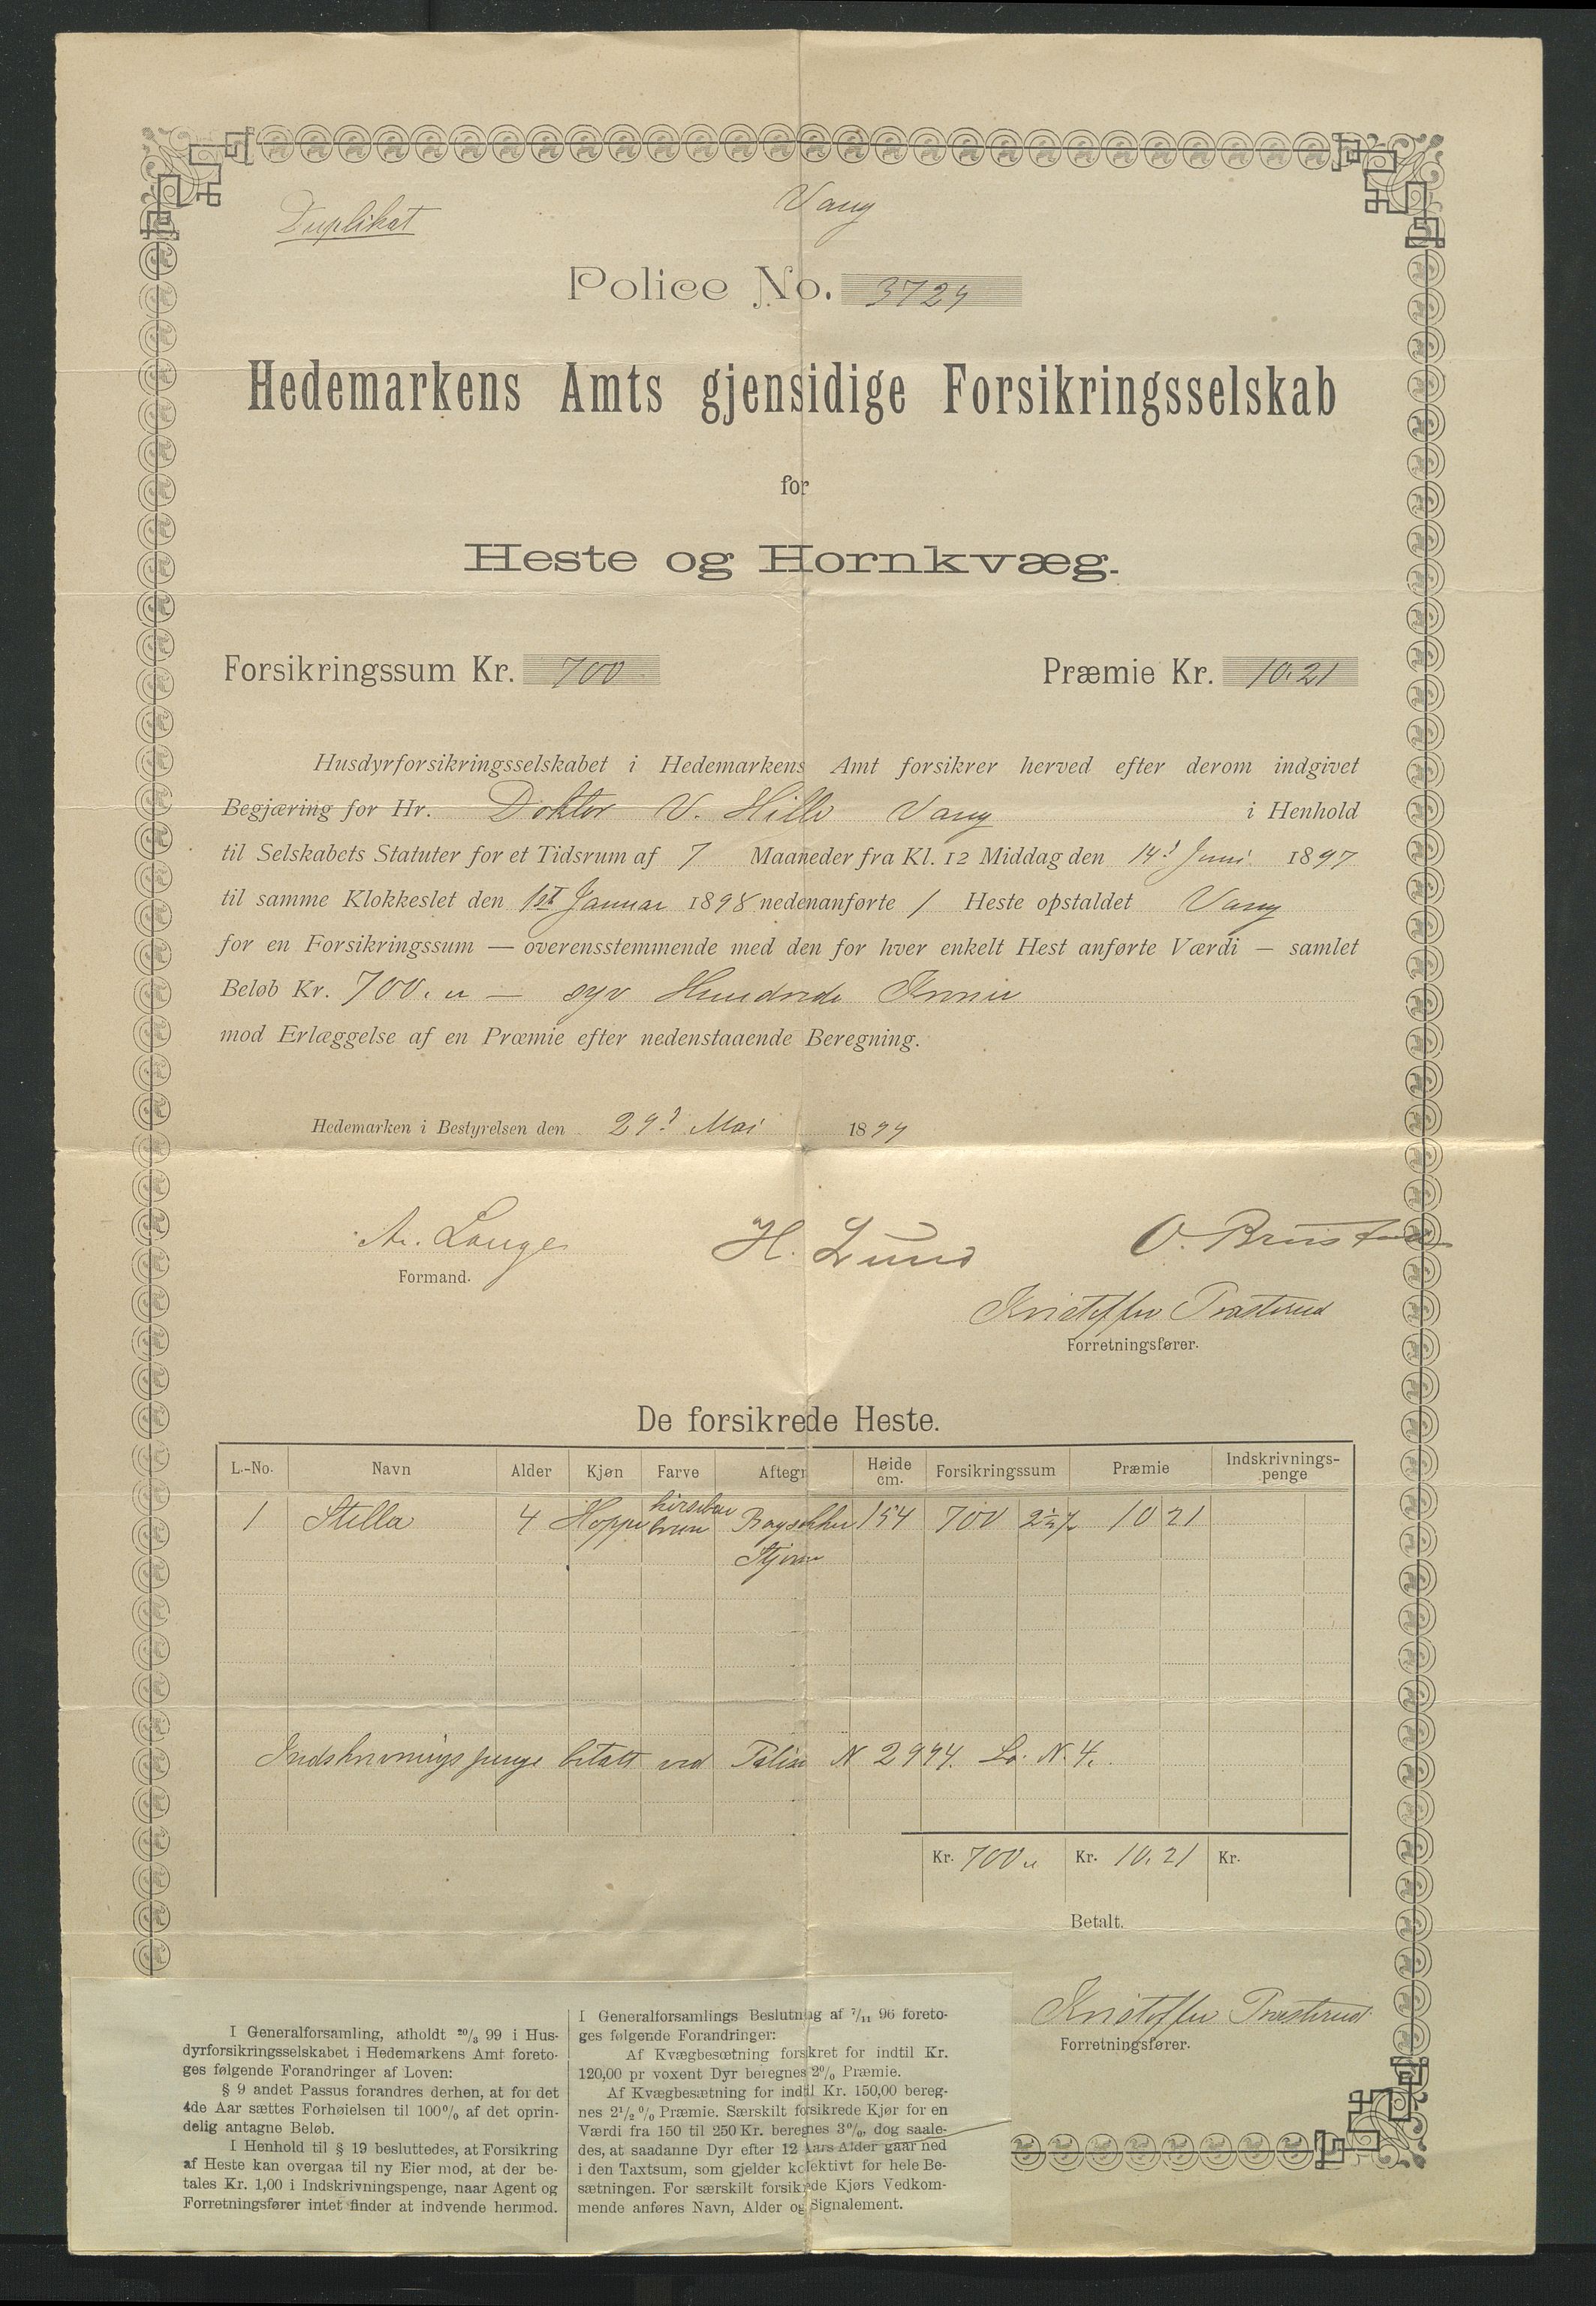 Duplikat
Vang
Police No. 3729
Hedemarkens Amts gjensidige Forsikringsselskab
for
Heste og Hornkvæg.
Forsikringssum Kr. 700
Præmie Kr. 10.21
Husdyrforsikringsselskabet i Hedemarkens Amt forsikrer herved efter derom indgivet
Begjæring for Hr. Doktor V. Hille Vang i Henhold
til Selskabets Statuter for et Tidsrum af 7 Maaneder fra Kl. 12 Middag den 14d Juni 1897
til samme Klokkeslet den 1st Januar 1898 nedenanførte 1 Heste opstaldet Vang
for en Forsikringssum — overensstemmende med den for hver enkelt Hest anførte Værdi — samlet
Beløb Kr. 700. " — syv Hundrede Kroner
mod Erlæggelse af en Præmie efter nedenstaaende Beregning.
Hedemarken i Bestyrelsen den 29d Mai 1899
A. Lange
Formand.
H. Lund
O. Brustad
Kristoffer Træsterud
Forretningsfører.
De forsikrede Heste.
L.-No. Navn Alder Kjøn Farve Aftegn Høide cm. Forsikringssum Præmie Indskrivnings-penge
1 Stella 4 Hoppe brun 154 700 2½% 10 21
Stjerne
Indskrivningspenge betalt ved Police N 2994. Lo. N. 4.
Kr. 700 " Kr. 10.21 Kr.
Betalt.
Kristoffer Træsterud
Forretningsfører.
I Generalforsamling, afholdt 20/3 99 i Hus-
dyrforsikringsselskabet i Hedemarkens Amt foreto-
ges følgende Forandringer af Loven:
§ 9 andet Passus forandres derhen, at for det
4de Aar sættes Forhøielsen til 100% af det oprin-
delig antagne Beløb.
I Henhold til § 19 besluttedes, at Forsikring
af Heste kan overgaa til ny Eier mod, at der be-
tales Kr. 1,00 i Indskrivningspenge, naar Agent og
Forretningsfører intet finder at indvende hermod.
I Generalforsamlings Beslutning af 7/11 96 foreto-
ges følgende Forandringer:
Af Kvægbesætning forsikret for indtil Kr.
120,00 pr voxent Dyr beregnes 2% Præmie.
Af Kvægbesætning for indtil Kr. 150,00 bereg-
nes 2½% Præmie. Særskilt forsikrede Kjør for en
Værdi fra 150 til 250 Kr. beregnes 3%, dog saale-
des, at saadanne Dyr efter 12 Aars Alder gaar ned
i den Taxtsum, som gjelder kolektivt for hele Be-
sætningen. For særskilt forsikrede Kjørs Vedkom-
mende anføres Navn, Alder og Signalement.